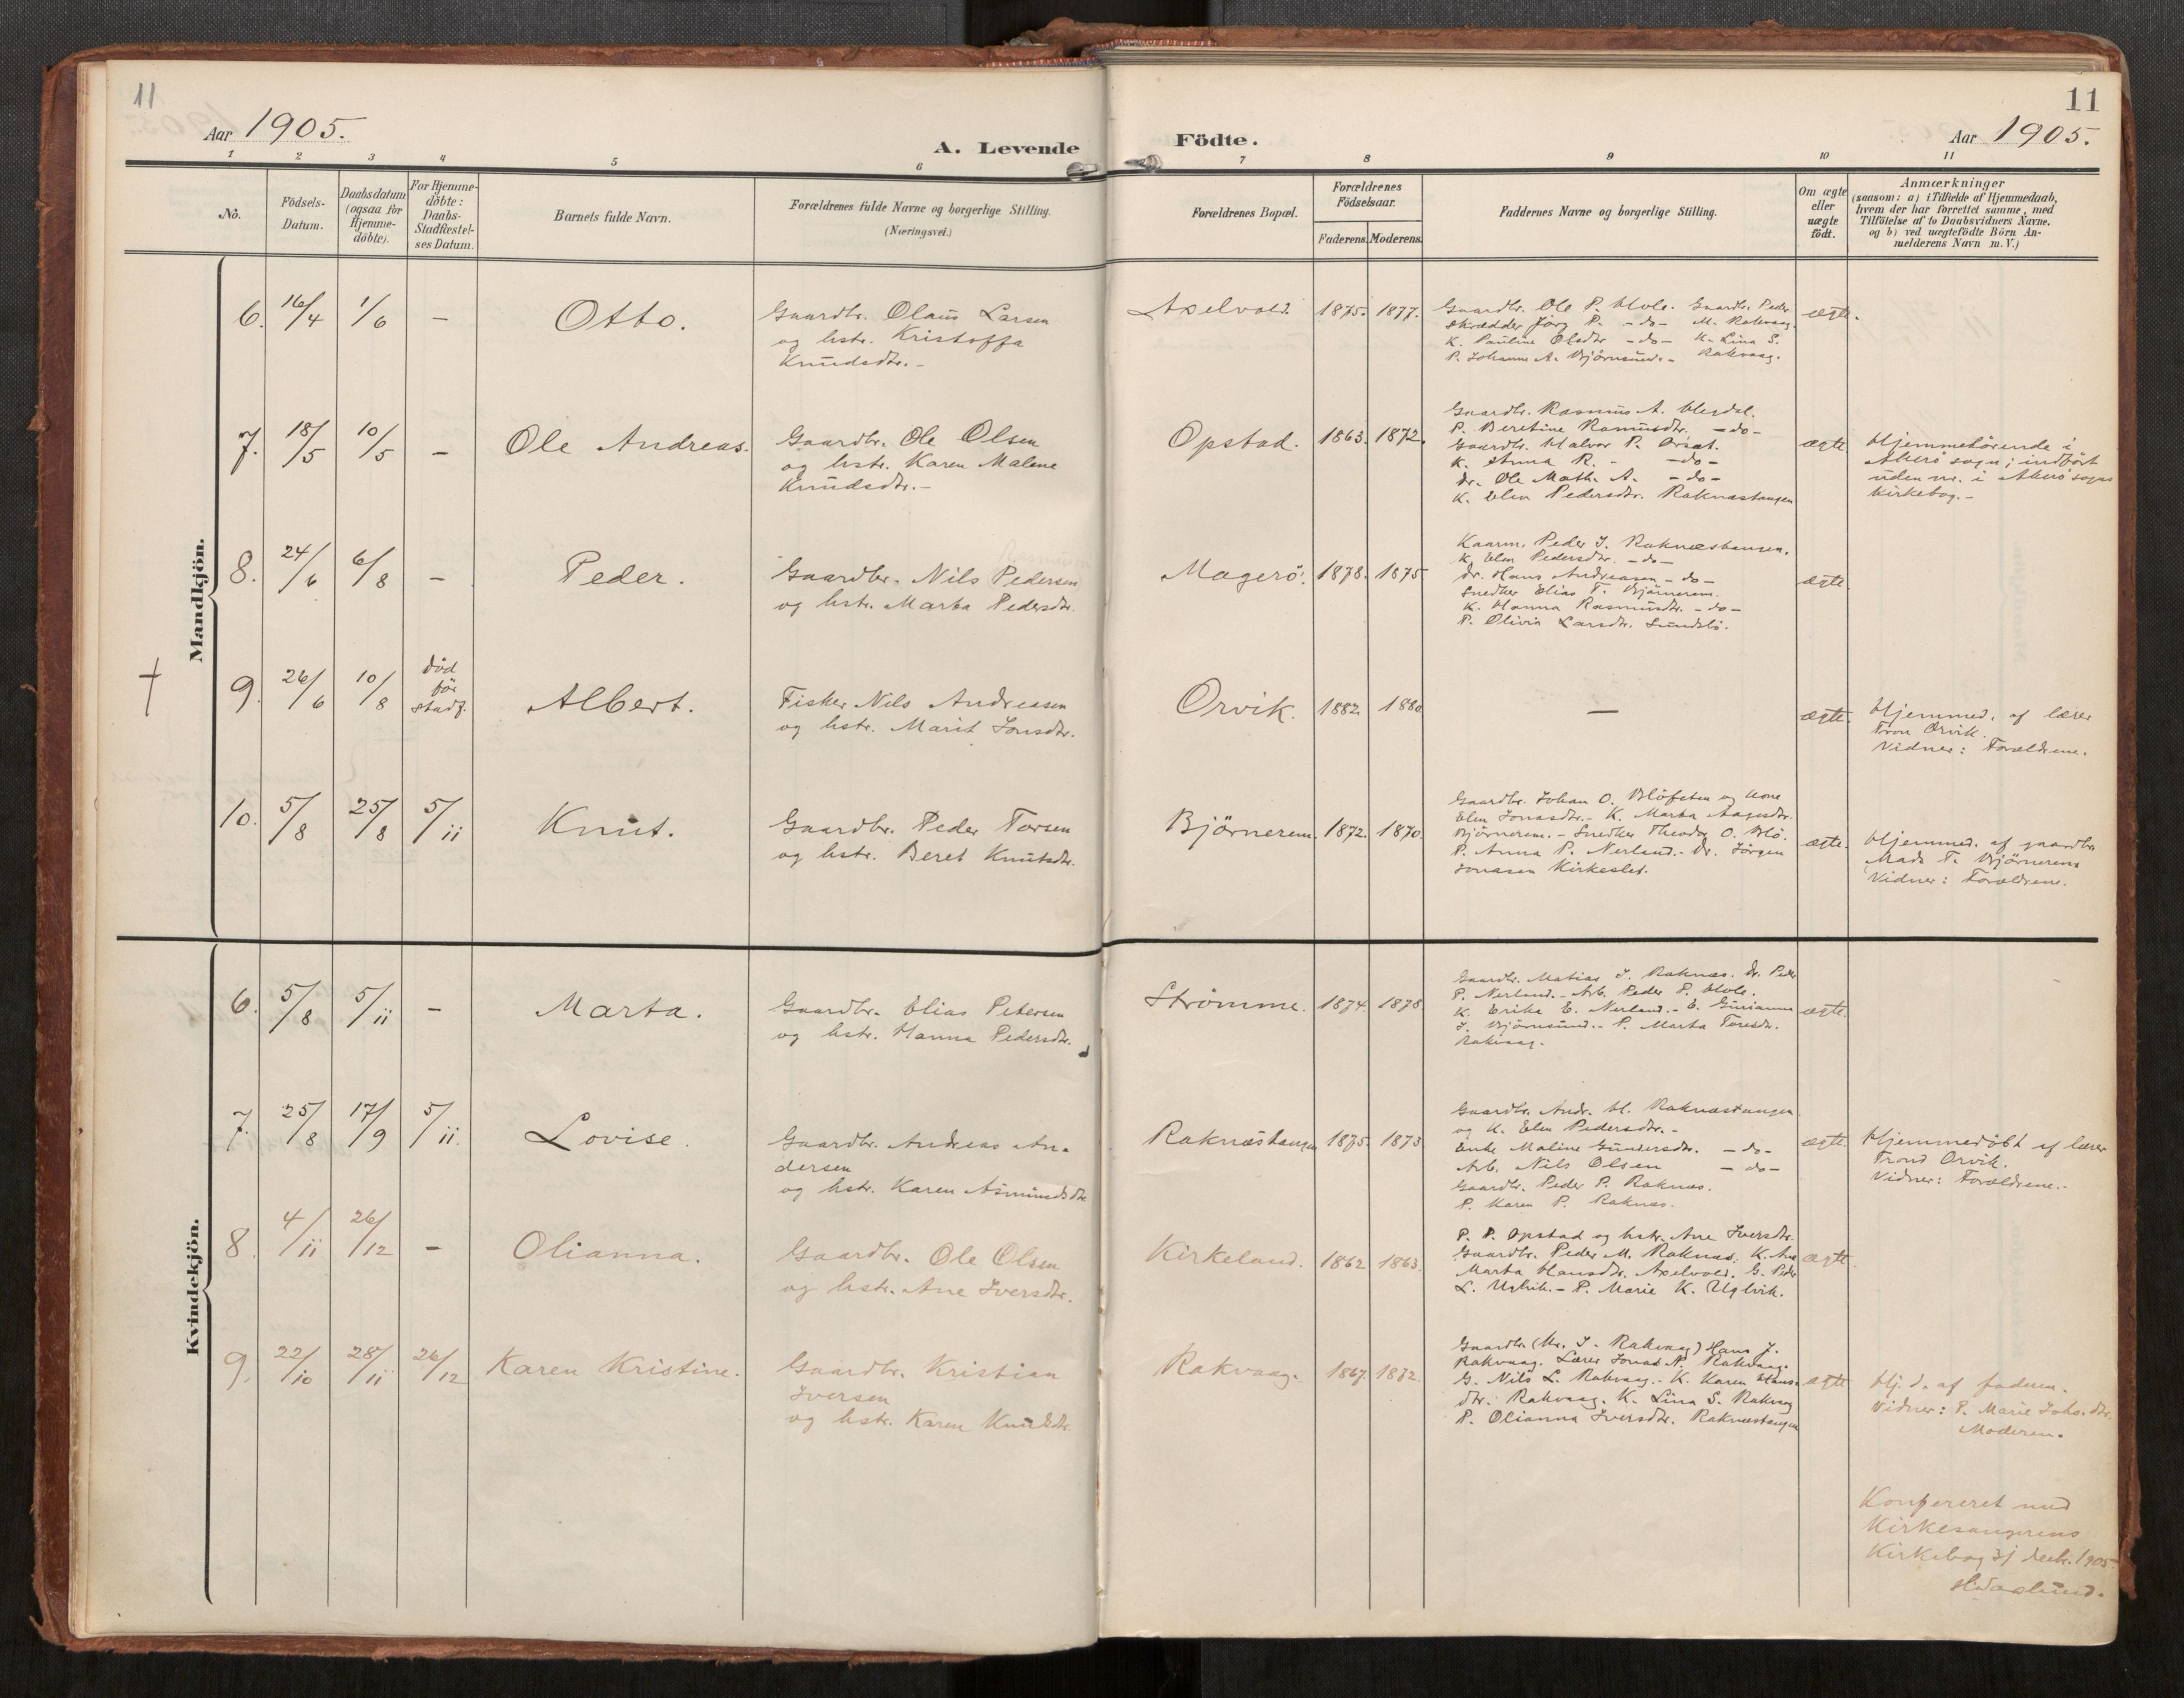 11
Aar 1905.
A. Levende
1 2 3 4 5 6
No.
Födsels-
Datum.
Daabsdatum
(ogsaa for
Hjemme-
döbte).
For Hjemme-
döbte:
Daabs-
Stadfæstel-
ses Datum.
Barnets fulde Navn.
Forældrenes fulde Navne og borgerlige Stilling.
(Næringsvei.)
Födte.
11
Aar 1905.
7 8 9 10 11
Forældrenes Bopæl.
Forældrenes
Födselsaar.
Faderens. Moderens.
Faddernes Navne og borgerlige Stilling.
Om ægte
eller
uægte
födt.
Anmærkninger
(saasom: a) i Tilfælde af Hjemmedaab,
hvem der har forrettet samme, med
Tilföielse af to Daabsvidners Navne,
og b) ved uægtefödte Börn An-
melderens Navn m. V.)
Mandkjön.
6. 16/4 1/6 – Otto.
Gaardbr. Olaus Larsen
og hstr. Kristoffa
Knudsdtr.-
Axelvold. 1875. 1877.
Gaardbr. Ole P. Hole. Gaardbr. Peder
Skrædder Jörg P. -do- M. Rakvaag.
K. Pauline Olsdtr -do- K. Lina S.
P. Johanne A. Björnsund.- Rakvaag.
ægte.
7. 18/5 10/5 – Ole Andreas.
Gaardbr. Ole Olsen
og hstr. Karen Malene
Knudsdtr.-
Opstad. 1863. 1872.
Gaardbr. Rasmus A.
P. Beretine Rasmusdtr. -do-
Gaardbr. Halvor R.
K. Anna R. - -do-
Dr. Ole Math. A. -do-
K. Elen Pedersdtr. Raknæstangen
ægte.
Hjemmehörende i
Akerö sogn; indfört
uden nr. i Akerö sogns
kirkebog.-
8. 24/6 6/8 – Peder.
Gaardbr. Nils Pedersen
og hstr. Marta Pedersdtr.
Magerö. 1878. 1875
Kaarm. Peder J. Raknæstangen.
K. Elen Pedersdtr. -do-
Dr. Hans Andreasen -do-
Snedker Elias T. Björnerem.
K. Hanna Rasmusdtr. -do-
P. Olivia Larsdtr. Sundsbö.
ægte.
†
9. 26/6 10/8 död
för
stadf.
Albert.
Fisker Nils Andreasen
og hstr. Marit Jonsdtr.
Orvik. 1882. 1880
– ægte.
Hjemmed. af lærer
Tron Orvik.
Vidner: Forældrene.
10. 5/8 25/8 5/11 Knut.
Gaardbr. Peder Torsen
og hstr. Beret Knutsdtr.
Björnerem. 1872. 1870.
Gaardbr. Johan O. og Kone
Elen Jonasdtr.- K. Marta Aagesdtr.
Björnerem.- Snedker Theodor O.
P. Anna P. Nerland.- Dr. Jörgen
Jonasen Kirkeslet.
ægte.
Hjemmed. af gaardbr.
Mads T. Björnerem
Vidner: Forældrene.
Kvindekjön.
6. 5/8 5/11 – Marta.
Gaardbr. Elias Petersen
og hstr. Hanna Pedersdtr.
Strömme. 1874. 1878
Gaardbr. Matias J. Raknæs. Dr. Peder
P. Nerland.- Arb. Peder P. Hole.
K. Erika E. Nerland.- E. Gurianna
J. Björnsund.- P. Marta Toresdtr.
Rakvaag.
ægte.
7. 25/8 17/9 5/11. Lovise.
Gaardbr. Andreas An-
dersen
og hstr. Karen Asmundsdtr.
Raknæstangen 1875. 1873
Gaardbr. Andr. H. Raknæstangen
og K. Elen Pedersdtr.-
Enke Maline Gundersdtr. -do-
Arb. Nils Olsen -do-
Gaardbr. Peder P. Raknæs.
P. Karen P. Raknæs.
ægte.
Hjemmedöbt af lærer
Trond Orvik.
Vidner: Forældrene.-
8. 4/11 26/12 – Olianna.
Gaardbr. Ole Olsen
og hstr. Ane Iversdtr.
Kirkeland. 1862 1863.
P. P. Opstad og hstr. Ane Iversdtr.
Gaardbr. Peder M. Raknæs. K. Ane
Marta Hansdtr. Axelvold. G. Peder
L. Uglvik.- P. Marie K. Uglvik.
ægte.
9. 22/10 28/11 26/12 Karen Kristine.
Gaardbr. Kristian
Iversen
og hstr. Karen Knudsdtr.
Rakvaag. 1867. 1872.
Gaardbr. (Mr. I. Rakvaag) Hans J.
Rakvaag. Lærer Jonas N. Rakvaag.
G. Nils L. Rakvaag.- K. Karen Hans-
dtr. Rakvaag. K. Lina S. Rakvaag
P. Olianna Iversdtr. Raknæstangen
ægte
Hj. d. af faderen.
Vidner: P. Marie Johs.dtr.
Moderen.
Konfereret med
Kirkesangerens
Kirkebog 31 decbr. 1905